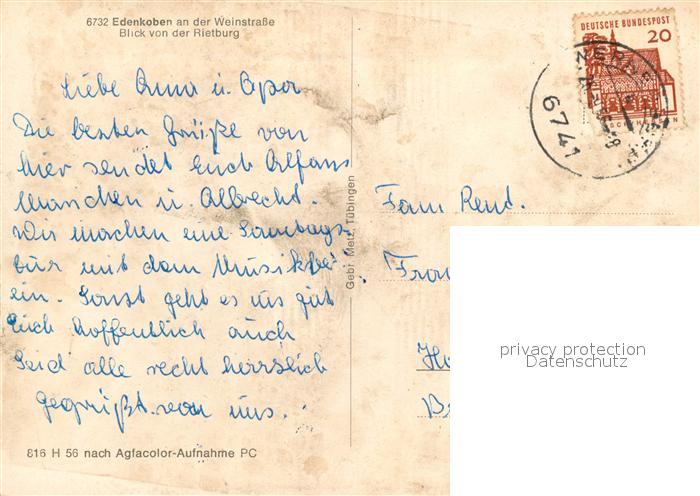 6732 Edenkoben an der Weinstraße
Blick von der Rietburg
DEUTSCHE BUNDESPOST
20
6741
Liebe Oma u. Opa
Die besten Grüße von
hier sendet Euch Alfons
u. Albrecht.
Wir machen eine Samtags-
tur mit dem
ein. Sonst geht es uns gut
Euch hoffentlich auch
Seid alle recht herzlich
gegrüßt von uns.
Gebr. Metz, Tübingen
Fam
816 H 56 nach Agfacolor-Aufnahme PC
privacy protection
Datenschutz